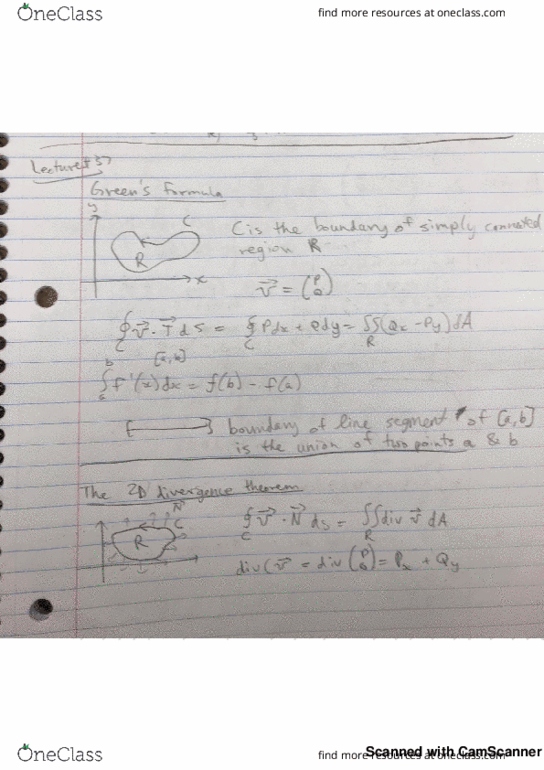 OneClass
find more resources at oneclass.com
Lecture #37
Green's Formula
y
C
C is the boundary of simply connected
R
region R
x
v⃗ = (P Q)
∮_C v⃗ · T⃗ ds = ∮_C Pdx + Qdy = ∬_R (Qx - Py) dA
[a,b]
∫ f'(x)dx = f(b) - f(a)
boundary of line segment of [a,b]
is the union of two points a & b
The 2D divergence theorem
N⃗
C
R
∮_C v⃗ · N⃗ ds = ∬_R div v⃗ dA
div(v⃗ = div (P Q) = Px + Qy
Scanned with CamScanner
OneClass
find more resources at oneclass.com